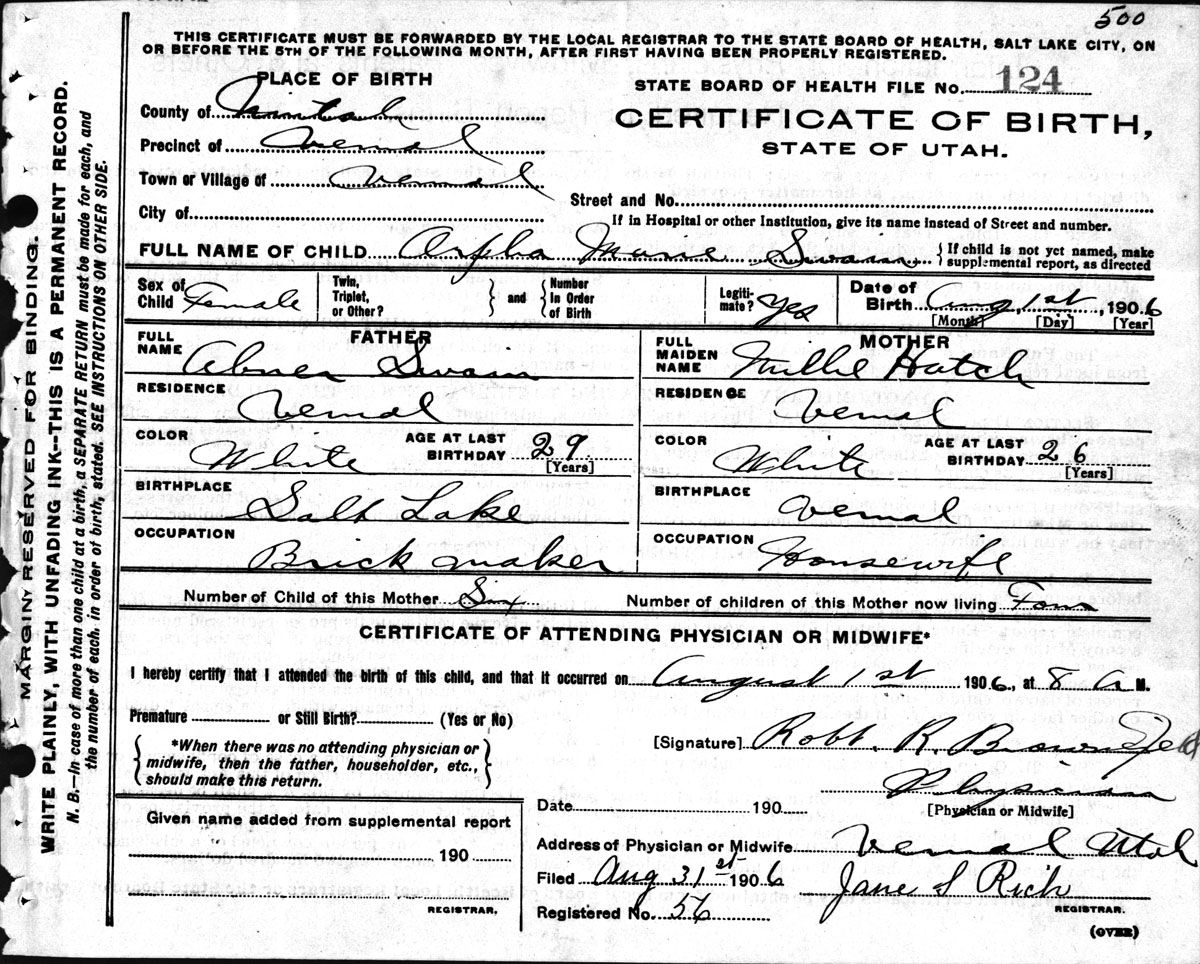 500
THIS CERTIFICATE MUST BE FORWARDED BY THE LOCAL REGISTRAR TO THE STATE BOARD OF HEALTH, SALT LAKE CITY, ON
OR BEFORE THE 5TH OF THE FOLLOWING MONTH, AFTER FIRST HAVING BEEN PROPERLY REGISTERED.
PLACE OF BIRTH
STATE BOARD OF HEALTH FILE No. 124
County of Uintah
CERTIFICATE OF BIRTH,
Precinct of Vernal
STATE OF UTAH.
Town or Village of Vernal
Street and No.
City of
If in Hospital or other Institution, give its name instead of Street and number.
FULL NAME OF CHILD Orpha Marie Swain { If child is not yet named, make
supplemental report, as directed
Sex of Child Female
Twin, Triplet, or Other? } and { Number In Order of Birth
Legiti-mate? Yes
Date of Birth Aug, 1st, 1906
[Month] [Day] [Year]
FATHER
FULL NAME Abner Swain
RESIDENCE
Vernal
COLOR White AGE AT LAST BIRTHDAY 29
[Years]
BIRTHPLACE
Salt Lake
OCCUPATION
Brick maker
MOTHER
FULL MAIDEN NAME Millie Hatch
RESIDENCE
Vernal
COLOR White AGE AT LAST BIRTHDAY 26
[Years]
BIRTHPLACE
Vernal
OCCUPATION
Housewife
Number of Child of this Mother Six Number of children of this Mother now living Four
CERTIFICATE OF ATTENDING PHYSICIAN OR MIDWIFE*
I hereby certify that I attended the birth of this child, and that it occurred on August 1st 1906, at 8 A M.
Premature or Still Birth? (Yes or No)
{ *When there was no attending physician or
midwife, then the father, householder, etc.,
should make this return. }
[Signature] Robt. R. Brownfield
Physician
[Physician or Midwife]
Date 190
Given name added from supplemental report
190
REGISTRAR.
Address of Physician or Midwife Vernal Utah
Filed Aug 31st 1906 Jane S Rich
REGISTRAR.
Registered No. 56
(OVER)
MARGIN RESERVED FOR BINDING.
WRITE PLAINLY, WITH UNFADING INK--THIS IS A PERMANENT RECORD.
N. B.—In case of more than one child at a birth, a SEPARATE RETURN must be made for each, and
the number of each, in order of birth, stated. SEE INSTRUCTIONS ON OTHER SIDE.